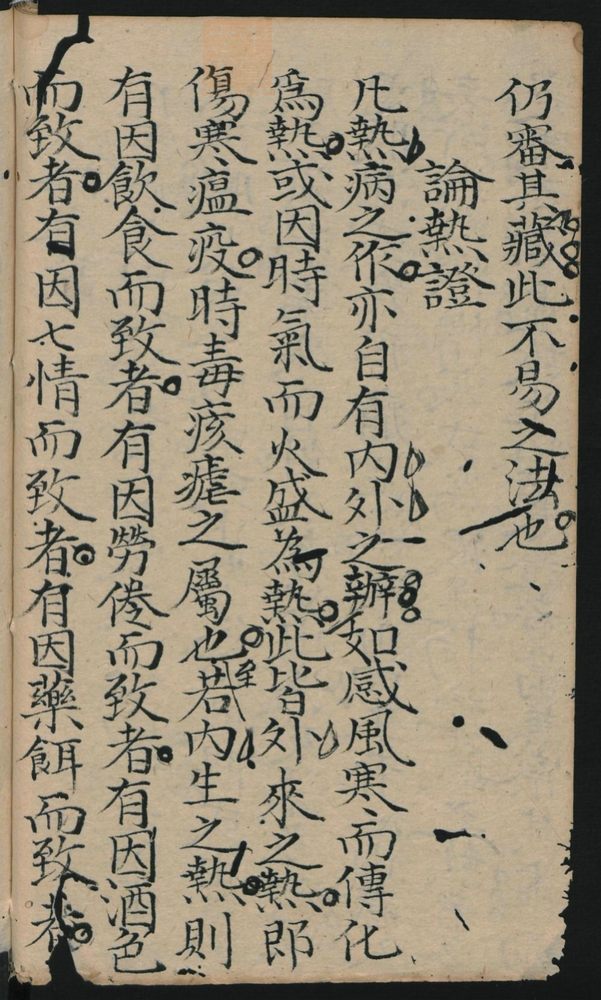 仍審其藏此不易之法也
論熱證
凡熱病之作亦自有內外之辦如感風寒而傳化
為熱或因時氣而火盛為熱此皆外來之熱即
傷寒瘟疫時毒痎瘧之屬也至若內生之熱則
有因飲食而致者有因勞倦而致者有因酒色
而致者有因七情而致者有因藥餌而致者